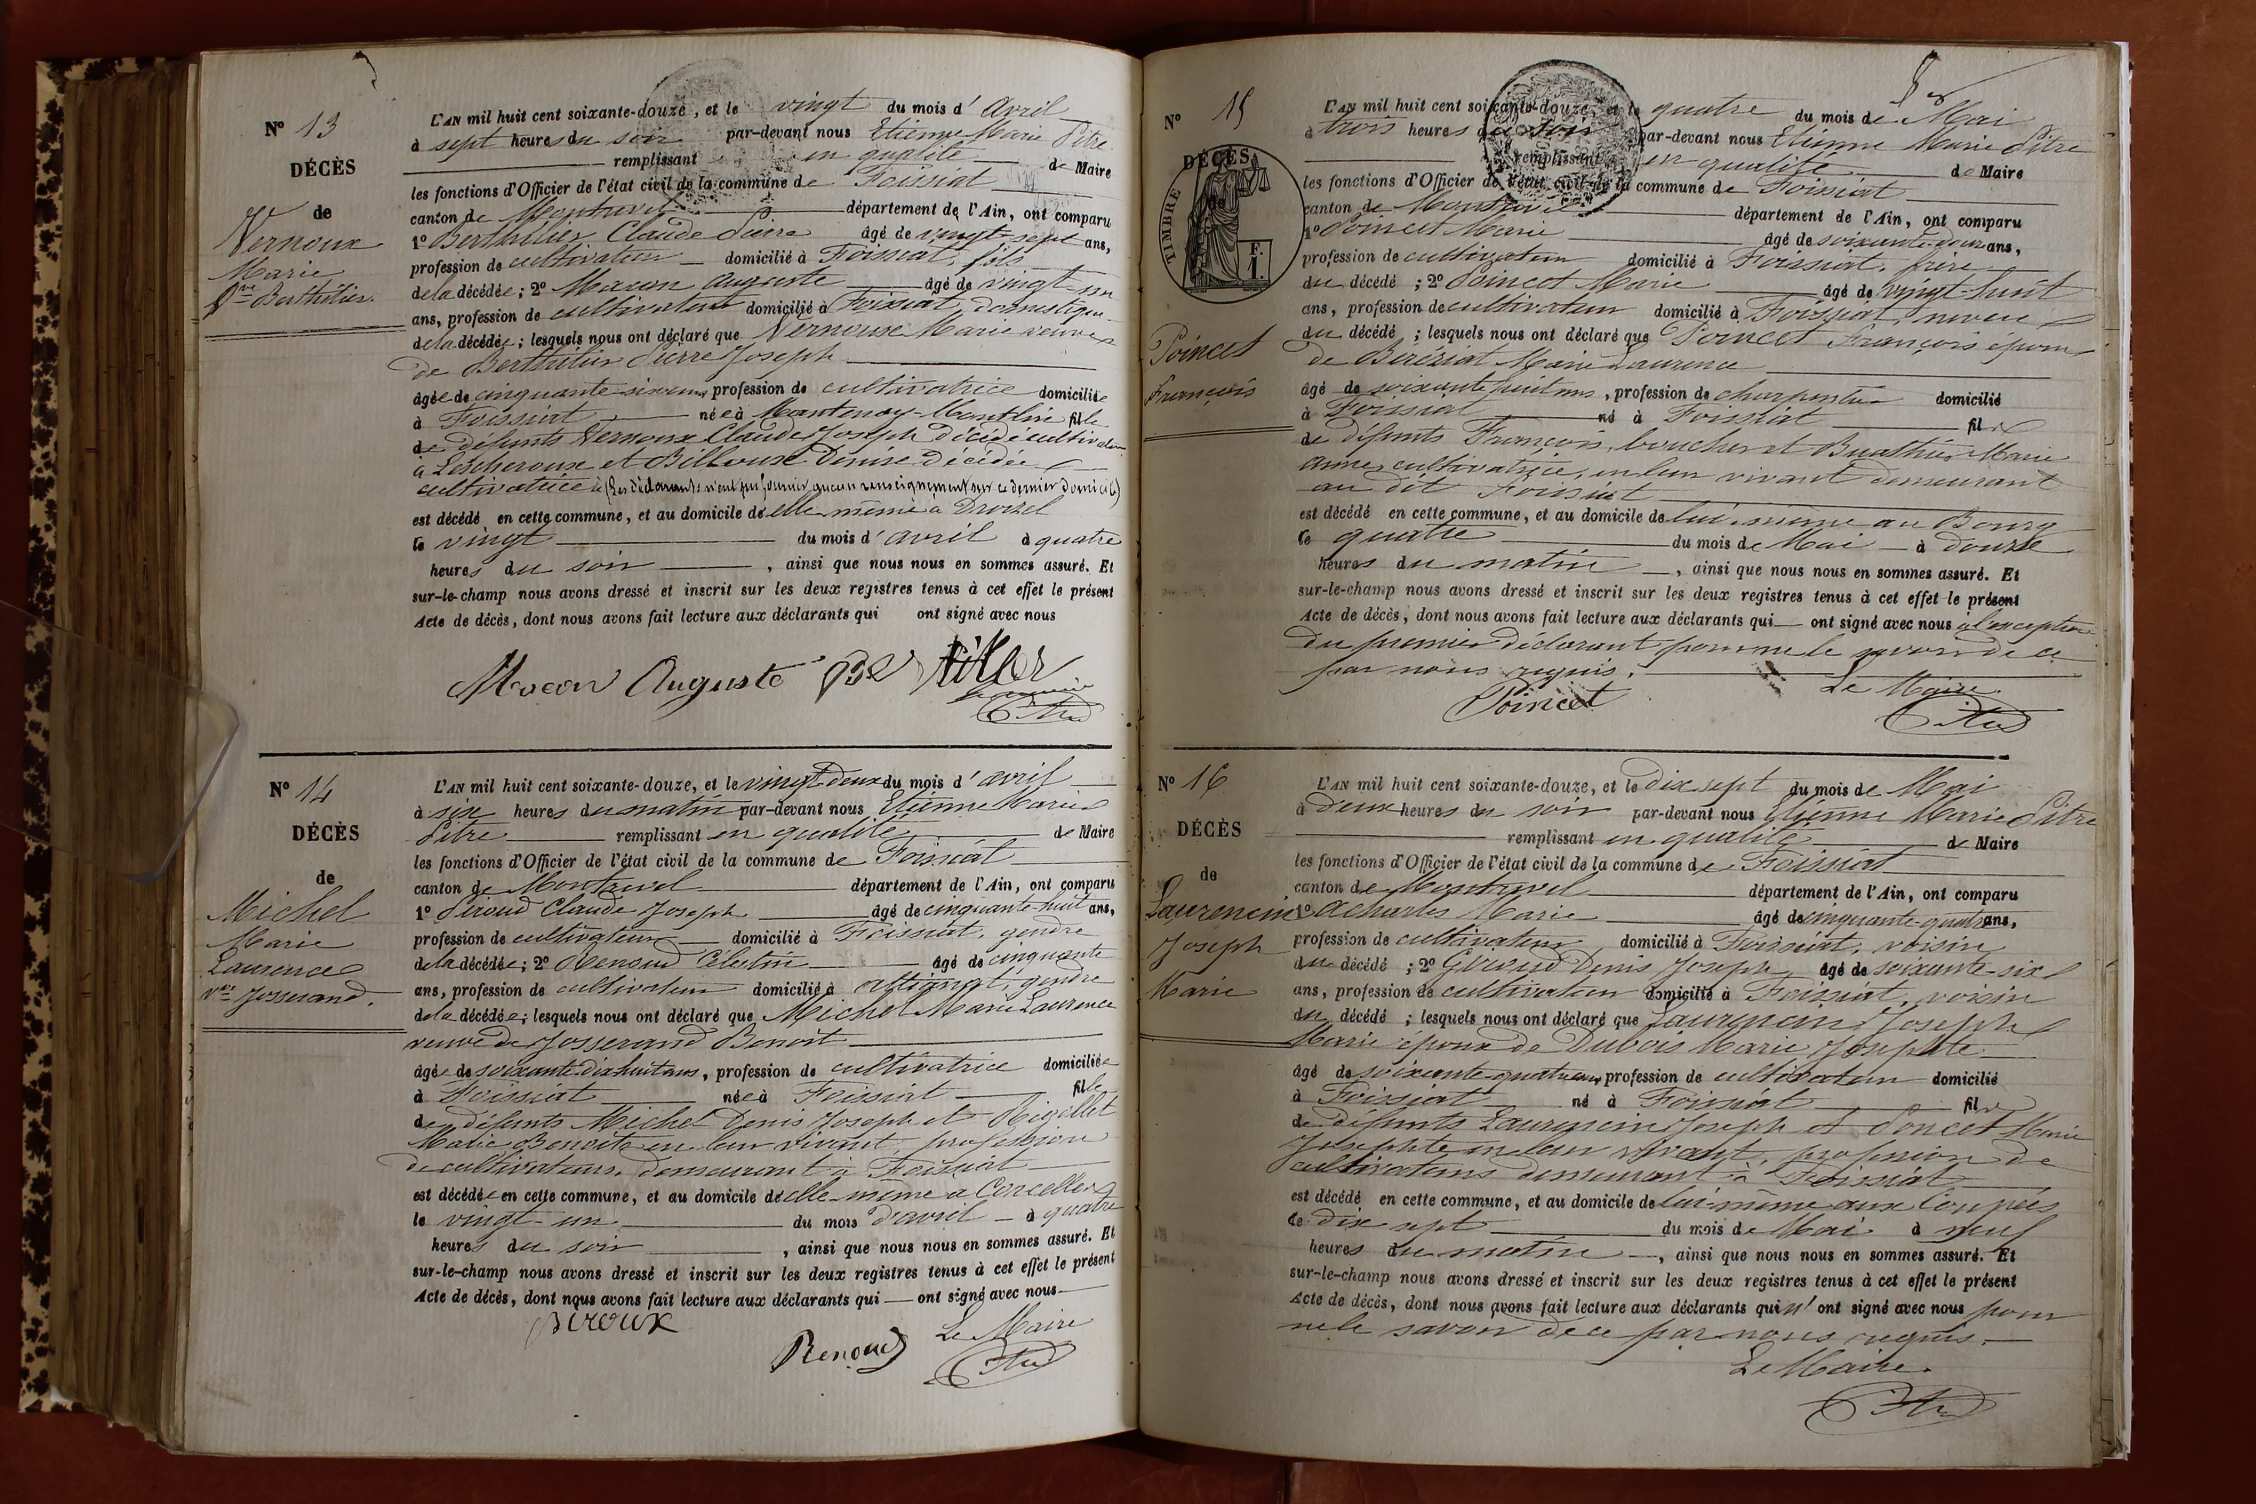 Nº 13
DÉCÈS
de
Vernoux
Marie
Vve Berthilier.
L'AN mil huit cent soixante-douze, et le vingt du mois d'Avril
à sept heures du soir par-devant nous Etienne Marie Pitre
remplissant en qualité de Maire
les fonctions d'Officier de l'état civil de la commune de Foissiat
canton de Montrevel département de l'Ain, ont comparu
1º Berthilier Claude Pierre âgé de vingt-sept ans,
profession de cultivateur domicilié à Foissiat, fils
de la décédée; 2º Macon Auguste âgé de vingt-un
ans, profession de cultivateur domicilié à Foissiat, domestique
de la décédée; lesquels nous ont déclaré que Vernoux Marie veuve
de Berthilier Pierre Joseph
âgée de cinquante six ans, profession de cultivatrice domiciliée
à Foissiat née à Mantenay-Montlin fille
de défunts Vernoux Claude Joseph décédé cultivateur
à Lescheroux et Billoux Denise décédée
cultivatrice à (les déclarants n'ont pu fournir aucun renseignement sur ce dernier domicile)
est décédé en cette commune, et au domicile de elle-même à
le vingt du mois d'avril à quatre
heures du soir, ainsi que nous nous en sommes assuré. Et
sur-le-champ nous avons dressé et inscrit sur les deux registres tenus à cet effet le présent
Acte de décès, dont nous avons fait lecture aux déclarants qui ont signé avec nous
Macon Auguste
Nº 14
DÉCÈS
de
Michel
Marie
Laurence
vve Josserand.
L'AN mil huit cent soixante-douze, et le vingt-deux du mois d'avril
à six heures du matin par-devant nous Etienne Marie
Pitre remplissant en qualité de Maire
les fonctions d'Officier de l'état civil de la commune de Foissiat
canton de Montrevel département de l'Ain, ont comparu
1º Péroud Claude Joseph âgé de cinquante-huit ans,
profession de cultivateur domicilié à Foissiat, gendre
de la décédée; 2º Renoud Célestin âgé de cinquante
ans, profession de cultivateur domicilié à Attignat, gendre
de la décédée; lesquels nous ont déclaré que Michel Marie Laurence
veuve de Josserand Benoit
âgée de soixante-dix huit ans, profession de cultivatrice domiciliée
à Foissiat née à Foissiat fille
de défunts Michel Denis Joseph et Rigollet
Marie Benoite en leur vivant profession
de cultivateurs, demeurant à Foissiat
est décédée en cette commune, et au domicile de elle-même à Corcelles
le vingt-un du mois d'avril à quatre
heures du soir, ainsi que nous nous en sommes assuré. Et
sur-le-champ nous avons dressé et inscrit sur les deux registres tenus à cet effet le présent
Acte de décès, dont nous avons fait lecture aux déclarants qui ont signé avec nous
Renoud Le Maire
Nº 15
DÉCÈS
de
TIMBRE
F.
1.
Poincet
François
L'AN mil huit cent soixante-douze, et le quatre du mois de Mai
à trois heures du soir par-devant nous Etienne Marie Pitre
remplissant en qualité de Maire
les fonctions d'Officier de l'état civil de la commune de Foissiat
canton de Montrevel département de l'Ain, ont comparu
1º Poincet Marie âgé de soixante-douze ans,
profession de cultivateur domicilié à Foissiat, frère
du décédé; 2º Poincet Marie âgé de vingt-huit
ans, profession de cultivateur domicilié à Foissiat, neveu
du décédé; lesquels nous ont déclaré que Poincet François époux
de Bereziat Marie Laurence
âgé de soixante huit ans, profession de charpentier domicilié
à Foissiat né à Foissiat fils
de défunts François, boucher et Buathier Marie
anne, cultivatrice, en leur vivant demeurant
au dit Foissiat
est décédé en cette commune, et au domicile de lui-même au Bourg
le quatre du mois de Mai à douze
heures du matin, ainsi que nous nous en sommes assuré. Et
sur-le-champ nous avons dressé et inscrit sur les deux registres tenus à cet effet le présent
Acte de décès, dont nous avons fait lecture aux déclarants qui ont signé avec nous à l'exception
du premier déclarant pour ne le savoir de ce
par nous requis.
Poincet Le Maire
Nº 16
DÉCÈS
de
Laurencin
Joseph
Marie
L'AN mil huit cent soixante-douze, et le dix sept du mois de Mai
à deux heures du soir par-devant nous Etienne Marie Pitre
remplissant en qualité de Maire
les fonctions d'Officier de l'état civil de la commune de Foissiat
canton de Montrevel département de l'Ain, ont comparu
1º Acharles Marie âgé de cinquante-quatre ans,
profession de cultivateur domicilié à Foissiat, voisin
du décédé; 2º Giroud Denis Joseph âgé de soixante-six
ans, profession de cultivateur domicilié à Foissiat, voisin
du décédé; lesquels nous ont déclaré que Laurencin Joseph
Marie époux de Dubois Marie Josephte
âgé de soixante-quatre ans, profession de cultivateur domicilié
à Foissiat né à Foissiat fils
de défunts Laurencin Joseph et Poncet Marie
Josephte en leur vivant, profession de
cultivateurs demeurant à Foissiat
est décédé en cette commune, et au domicile de lui-même aux
le dix sept du mois de Mai à neuf
heures du matin, ainsi que nous nous en sommes assuré. Et
sur-le-champ nous avons dressé et inscrit sur les deux registres tenus à cet effet le présent
Acte de décès, dont nous avons fait lecture aux déclarants qui n'ont signé avec nous pour
ne le savoir de ce par nous requis.
Le Maire